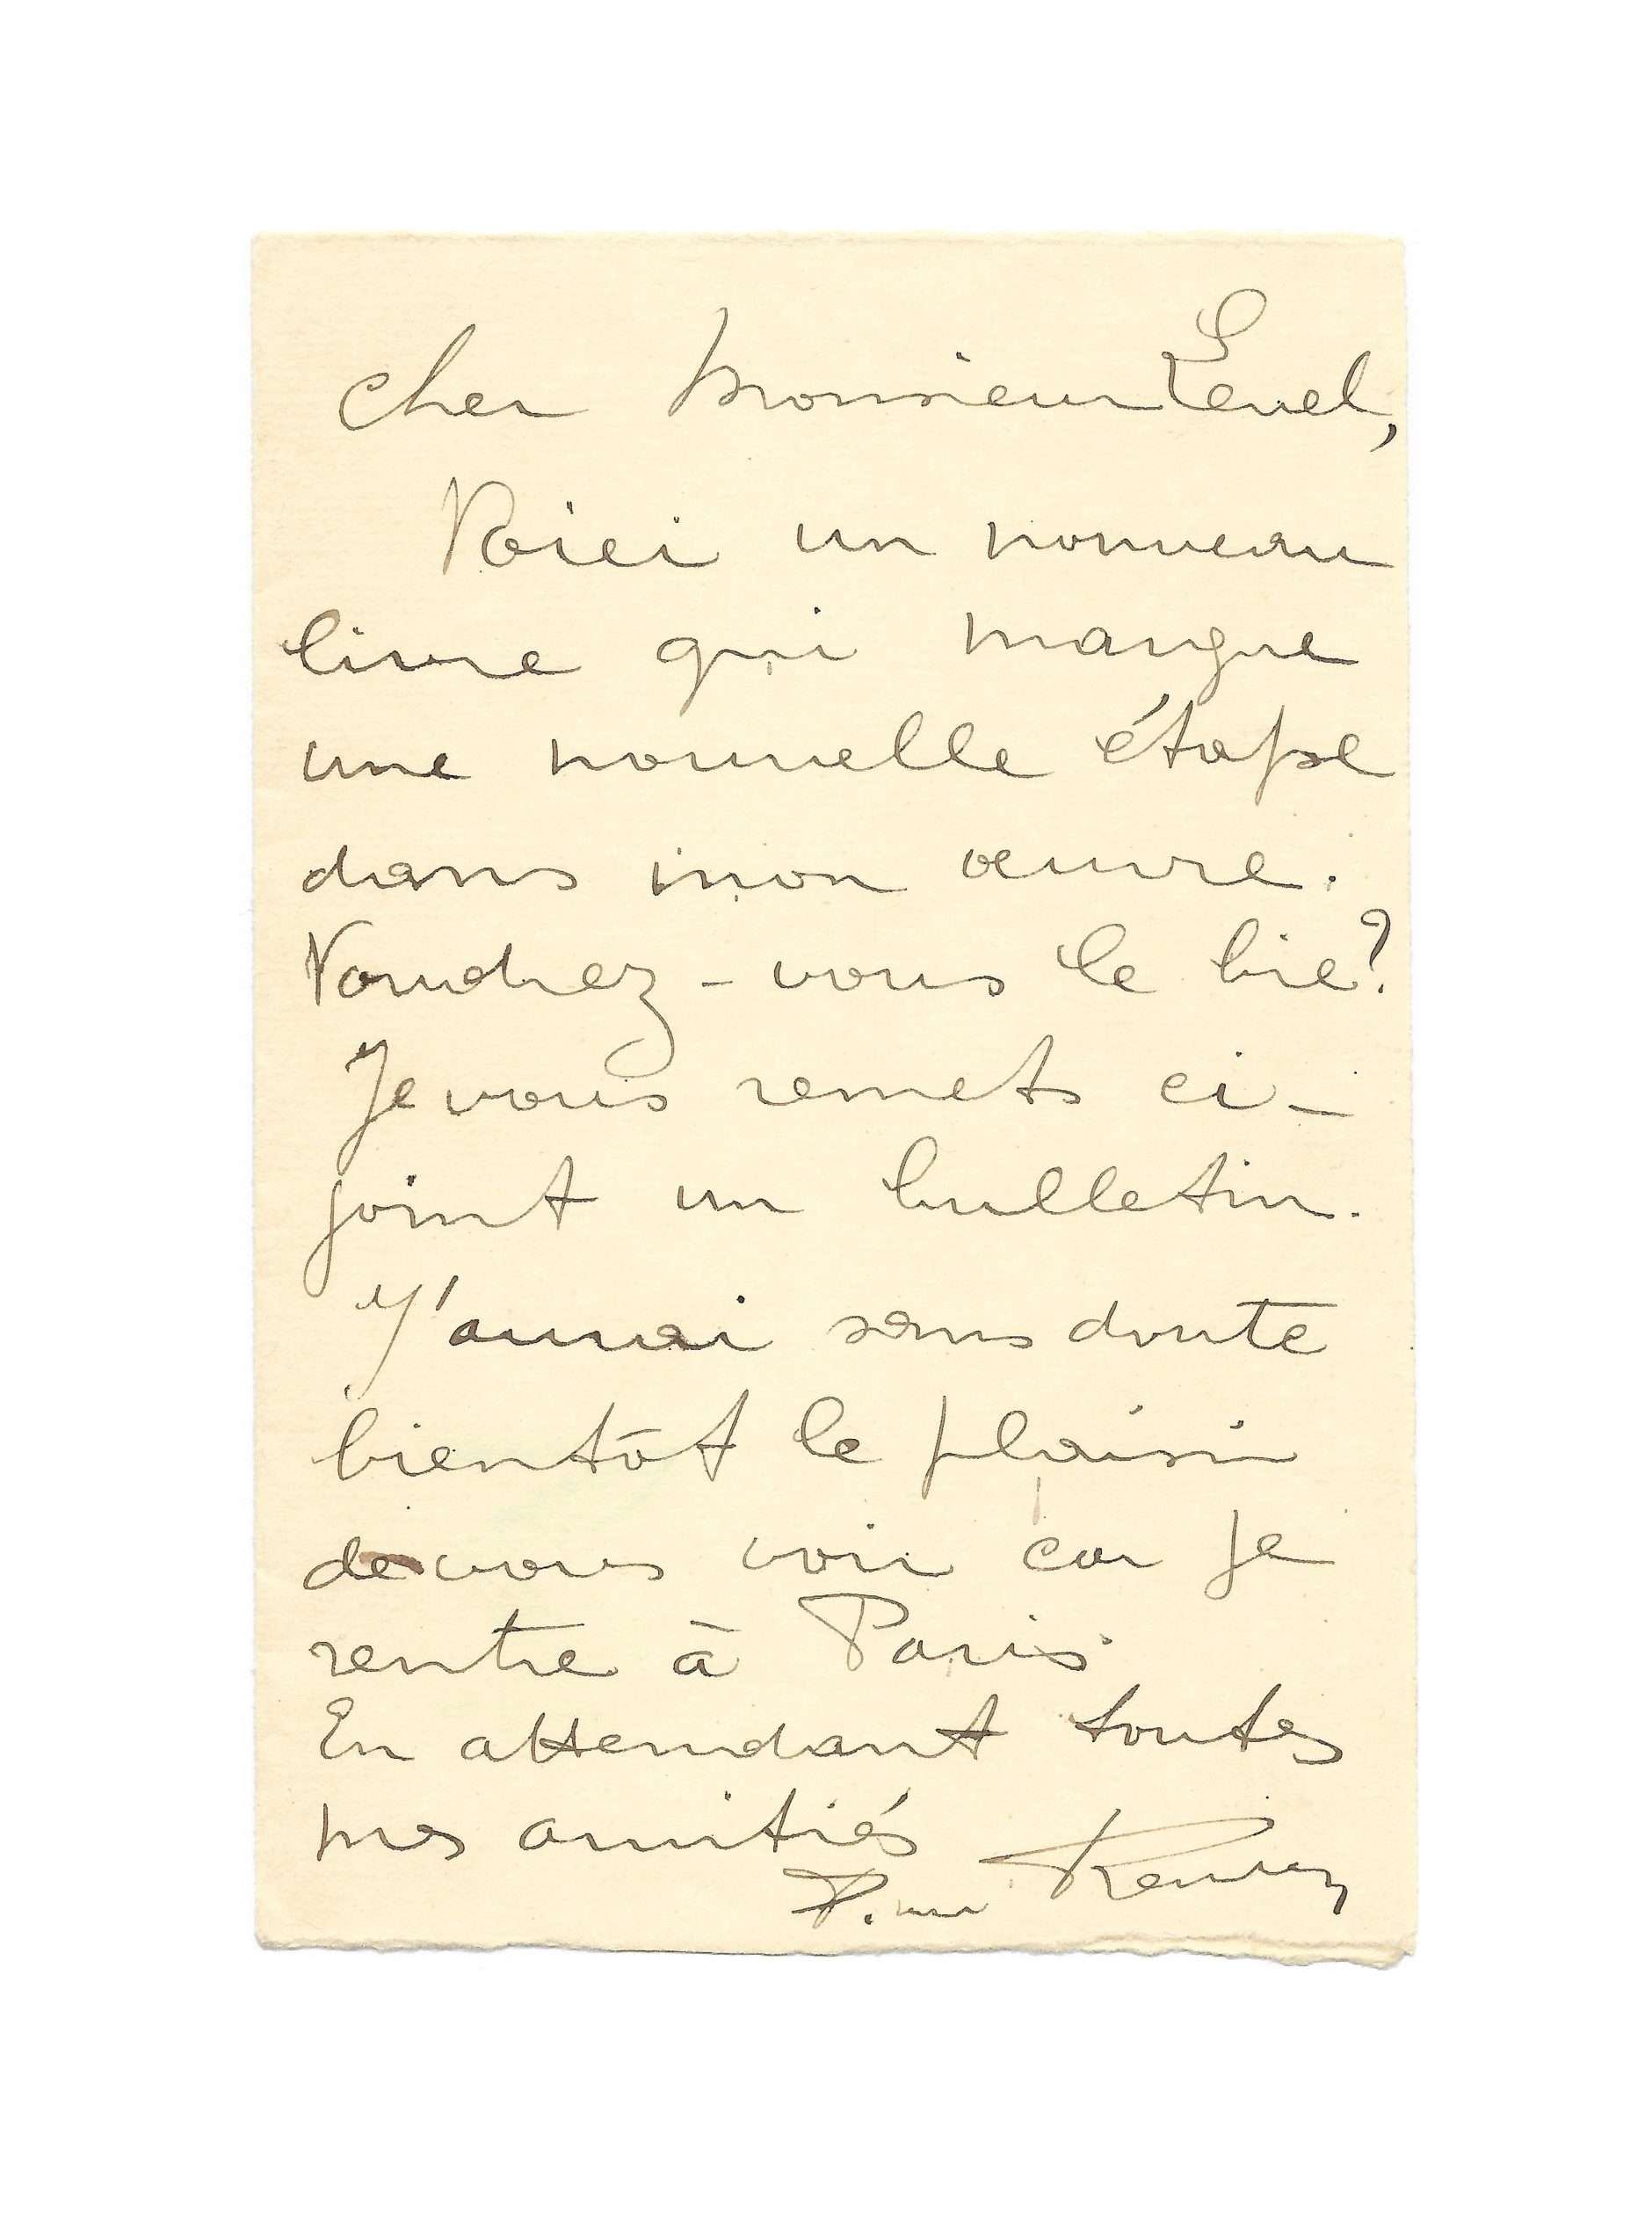 Cher Monsieur Level,
Voici un nouveau
livre qui marque
une nouvelle étape
dans mon œuvre.
Voudrez-vous le lire?
Je vous remets ci-
joint un bulletin.
J'aurai sans doute
bientôt le plaisir
de vous voir car je
rentre à Paris.
En attendant toutes
mes amitiés